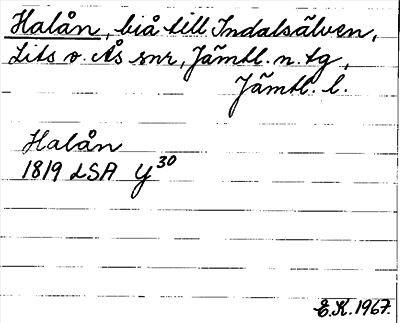 Halån, biå till Indalsälven,
Lits o. Ås snr, Jämtl. n. tg,
Jämtl. l.
Halån
1819 LSA Y30
E.K. 1967.